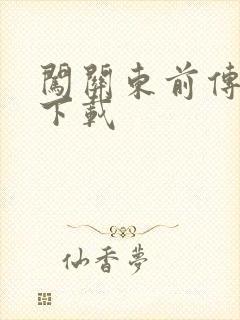 闖關東前傳
下載
仙香夢